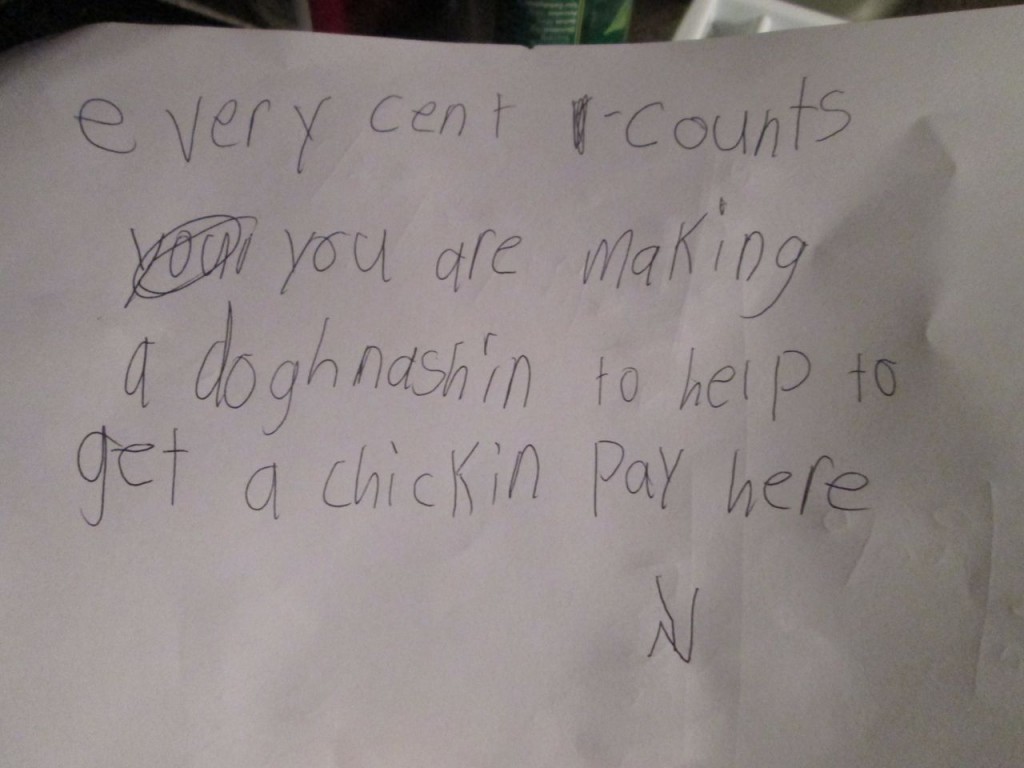 every cent -counts
you are making
a doghnashin to help to
get a chickin pay here